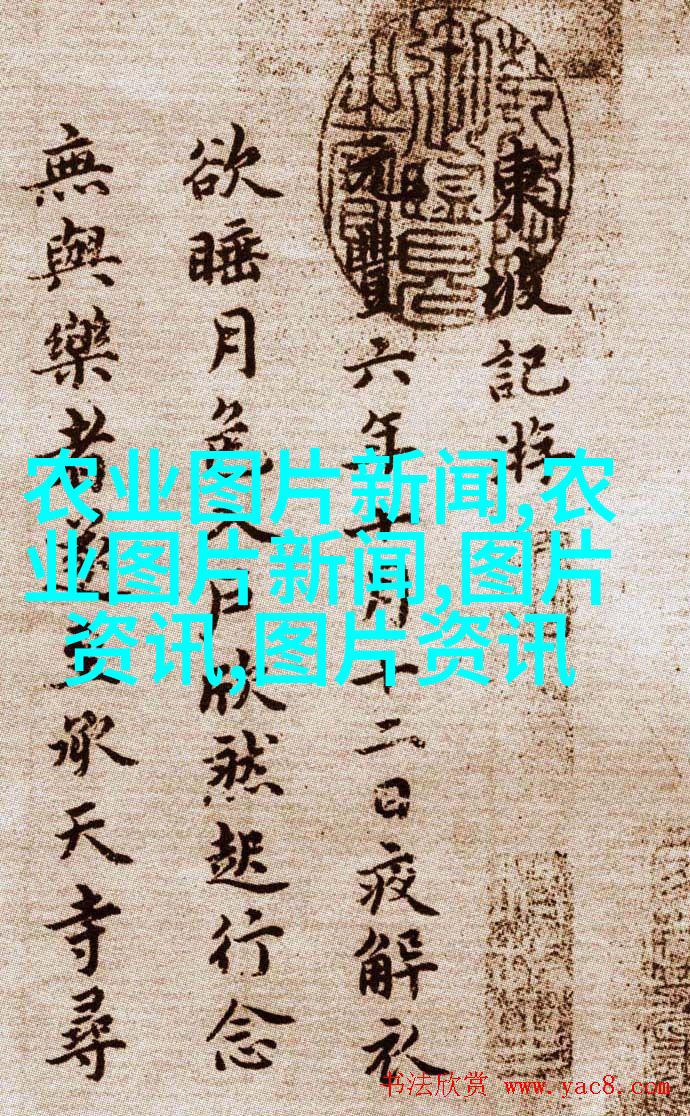 東坡記游
元豐六年十月十二日夜解衣
欲睡月色入戶欣然起行念
無與樂者遂至承天寺尋
农业图片新闻,农
业图片新闻,图片
资讯,图片资讯
书法欣赏 www.yac8.com